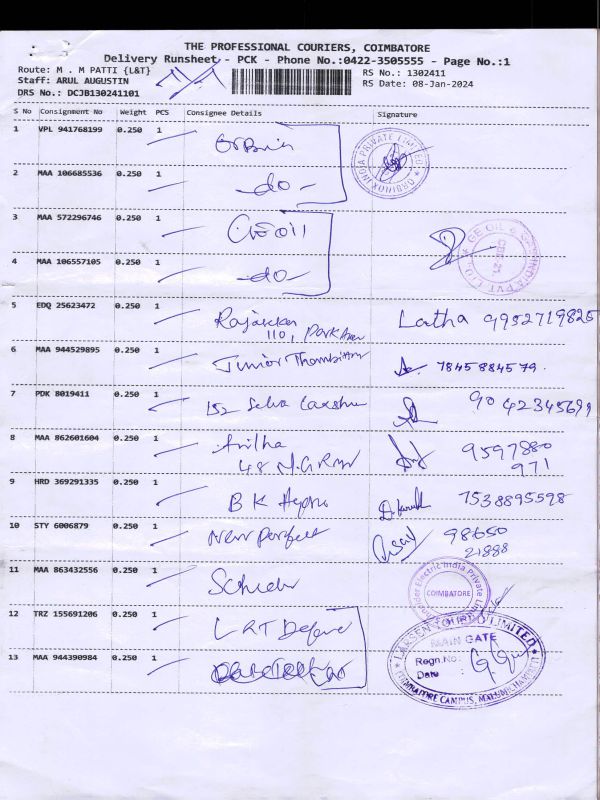 THE PROFESSIONAL COURIERS, COIMBATORE
Delivery Runsheet - PCK - Phone No.:0422-3505555 - Page No.:1
Route: M . M PATTI {L&T}
RS No.: 1302411
Staff: ARUL AUGUSTIN
RS Date: 08-Jan-2024
DRS No.: DCJB130241101
S No Consignment No Weight PCS Consignee Details Signature
1 VPL 941768199 0.250 1
ORBINOX INDIA PRIVATE LIMITED
2 MAA 106685536 0.250 1 -do-
3 MAA 572296746 0.250 1 GE Oil
4 MAA 106557105 0.250 1 -do-
5 EDQ 25623472 0.250 1 Latha 9952719825
110, Park
6 MAA 944529895 0.250 1 Junior 7845884579
7 PDK 8019411 0.250 1 152 Selva Lakshmi 9042345691
8 MAA 862601604 0.250 1 9597880
48 M.G.R 971
9 HRD 369291335 0.250 1 B K 7538895598
10 STY 6006879 0.250 1 New Perfect 98650
21888
11 MAA 863432556 0.250 1
Schneider Electric India Private Limited
COIMBATORE
12 TRZ 155691206 0.250 1 L&T Defence
LARSEN & TOUBRO LIMITED
MAIN GATE
13 MAA 944390984 0.250 1
Regn.No:
Date :
COIMBATORE CAMPUS, MALUMICHAMPATTI